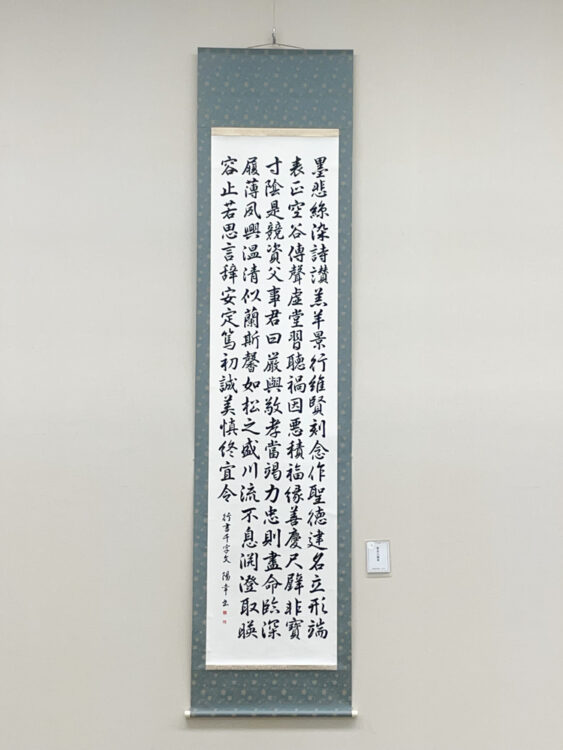 墨悲絲染詩讃羔羊景行維賢剋念作聖徳建名立形端
表正空谷傳聲虚堂習聽禍因悪積福縁善慶尺璧非寶
寸陰是競資父事君曰嚴與敬孝當竭力忠則盡命臨深
履薄夙興温清似蘭斯馨如松之盛川流不息渕澄取暎
容止若思言辞安定篤初誠美慎終宜令
行書千字文 陽幸書